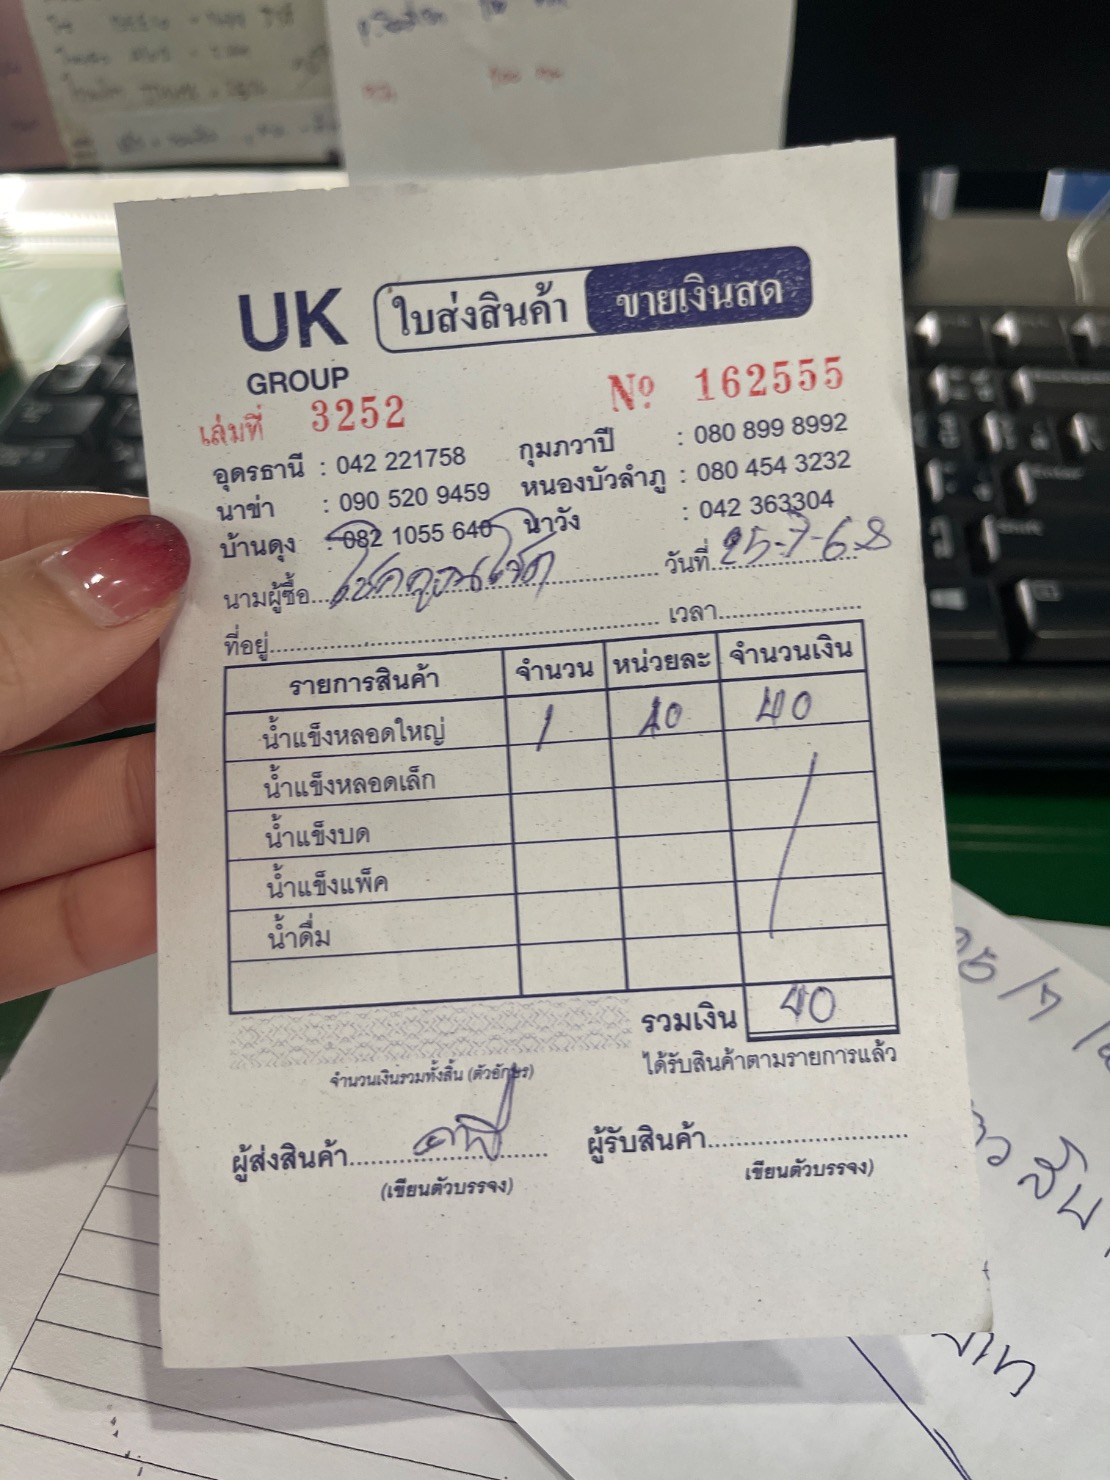 UK ใบส่งสินค้า ขายเงินสด
GROUP
เล่มที่ 3252 Nº 162555
อุดรธานี : 042 221758 กุมภวาปี : 080 899 8992
นาข่า : 090 520 9459 หนองบัวลำภู : 080 454 3232
บ้านดุง : 082 1055 640 นาวัง : 042 363304
นามผู้ซื้อ วันที่ 25-7-68
ที่อยู่ เวลา
รายการสินค้า จำนวน หน่วยละ จำนวนเงิน
น้ำแข็งหลอดใหญ่ 1 40 40
น้ำแข็งหลอดเล็ก
น้ำแข็งบด
น้ำแข็งแพ็ค
น้ำดื่ม
รวมเงิน 40
จำนวนเงินรวมทั้งสิ้น (ตัวอักษร) ได้รับสินค้าตามรายการแล้ว
ผู้ส่งสินค้า ผู้รับสินค้า
(เขียนตัวบรรจง) เขียนตัวบรรจง)